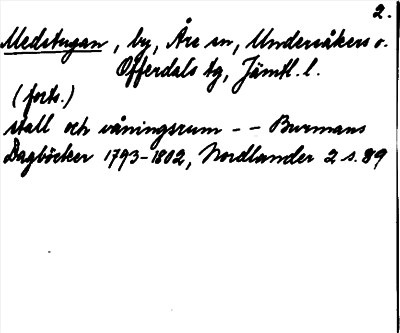 2.
Medstugan, by, Åre sn, Undersåkers o.
Offerdals tg, Jämtl. l.
(forts.)
stall och våningsrum - - Burmans
Dagböcker 1793-1802, Nordlander 2 s. 89